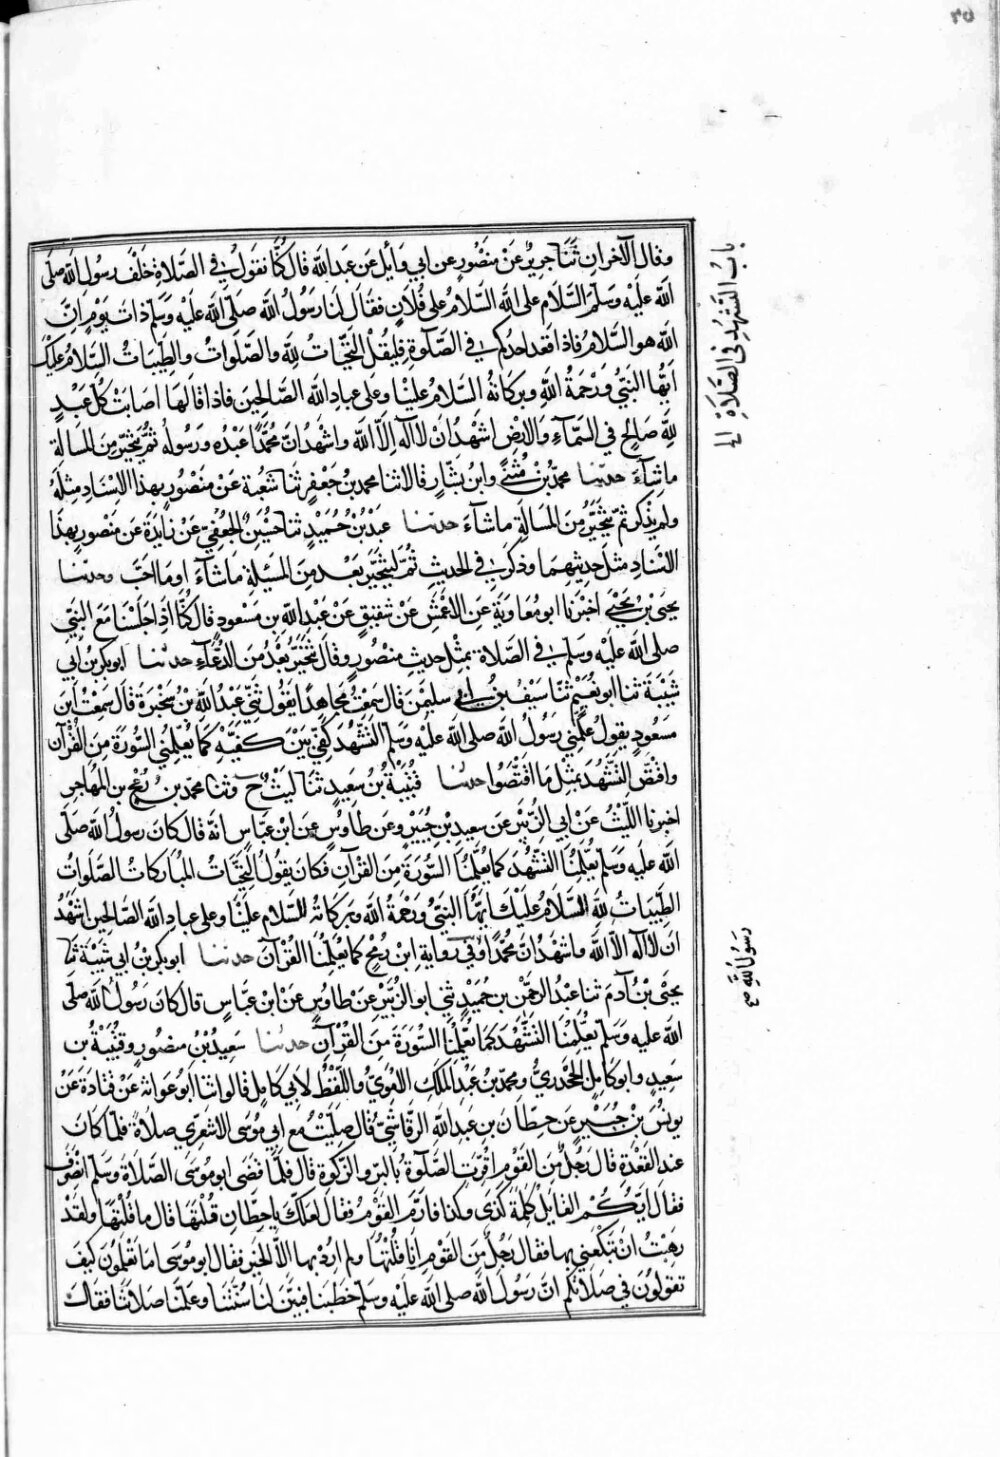 ٣٥
وقال الآخران ثنا جرير عن منصور عن ابي وائل عن عبد الله قال كنا نقول في الصلاة خلف رسول الله صلى
الله عليه وسلم السلام على الله السلام على فلان فقال لنا رسول الله صلى الله عليه وسلم ذات يوم ان
الله هو السلام فاذا قعد احدكم في الصلوة فليقل التحيات لله والصلوات والطيبات السلام عليك
ايها النبي ورحمة الله وبركاته السلام علينا وعلى عباد الله الصالحين فاذا قالها اصابت كل عبد
لله صالح في السماء والارض اشهد ان لا اله الا الله واشهد ان محمدا عبده ورسوله ثم يتخير من المسالة
ما شاء حدثنا محمد بن مثنى وابن بشار قالا ثنا محمد بن جعفر ثنا شعبة عن منصور بهذا الاسناد مثله
ولم يذكر ثم يتخير من المسالة ما شاء حدثنا عبد بن حميد ثنا حسين الجعفي عن زايدة عن منصور بهذا
الاسناد مثل حديثهما وذكر في الحديث ثم ليتخير بعد من المسئلة ما شاء او ما احب وحدثنا
يحيى بن يحيى اخبرنا ابو معاوية عن الاعمش عن شقيق عن عبد الله بن مسعود قال كنا اذا جلسنا مع النبي
صلى الله عليه وسلم في الصلاة بمثل حديث منصور وقال يتخير بعد من الدعاء حدثنا ابو بكر بن ابي
شيبة ثنا ابو نعيم ثنا سيف بن ابي سليمن قال سمعت مجاهدا يقول ثني عبد الله بن سخبرة قال سمعت ابن
مسعود يقول علمني رسول الله صلى الله عليه وسلم التشهد كفي بين كفيه كما يعلمني السورة من القرآن
واقتص التشهد بمثل ما اقتصوا حدثنا قتيبة بن سعيد ثنا ليث ح وثنا محمد بن رمح بن المهاجر
اخبرنا الليث عن ابي الزبير عن سعيد بن جبير وعن طاوس عن ابن عباس انه قال كان رسول الله صلى
الله عليه وسلم يعلمنا التشهد كما يعلمنا السورة من القرآن فكان يقول التحيات المباركات الصلوات
الطيبات لله السلام عليك ايها النبي ورحمة الله وبركاته السلام علينا وعلى عباد الله الصالحين اشهد
ان لا اله الا الله واشهد ان محمدا وفي رواية ابن رمح كما يعلمنا القرآن حدثنا ابو بكر بن ابي شيبة ثنا
يحيى بن آدم ثنا عبد الرحمن بن حميد ثني ابو الزبير عن طاوس عن ابن عباس قال كان رسول الله صلى
الله عليه وسلم يعلمنا التشهد كما يعلمنا السورة من القرآن حدثنا سعيد بن منصور وقتيبة بن
سعيد وابو كامل الجحدري ومحمد بن عبد الملك الاموي واللفظ لابي كامل قالوا ثنا ابو عوانة عن قتادة عن
يونس بن جبير عن حطان بن عبد الله الرقاشي قال صليت مع ابي موسى الاشعري صلاة فلما كان
عند القعدة قال رجل من القوم اقرت الصلوة بالبر والزكوة قال فلما قضى ابو موسى الصلاة وسلم انصرف
فقال ايكم القايل كلمة كذى وكذا فارم القوم فقال لعلك يا حطان قلتها قال ما قلتها ولقد
رهبت ان تبكعني بها فقال رجل من القوم انا قلتها ولم ارد بها الا الخير فقال ابو موسى اما تعلمون كيف
تقولون في صلاتكم ان رسول الله صلى الله عليه وسلم خطبنا فبين لنا سنتنا وعلمنا صلاتنا فقال
باب التشهد في الصلاة
رسول الله